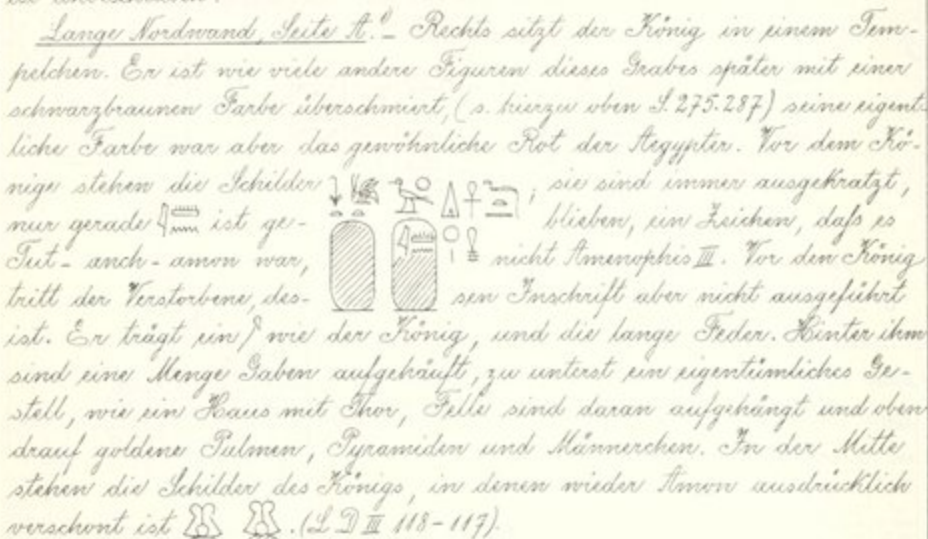 ist unbeschrieben.
Lange Nordwand, Seite A.¹⁾ – Rechts sitzt der König in einem Tem-
pelchen. Er ist wie viele andere Figuren dieses Grabes später mit einer
schwarzbraunen Farbe überschmiert, (s. hierzu oben S. 275. 287) seine eigent-
liche Farbe war aber das gewöhnliche Rot der Aegypter. Vor dem Kö-
nige stehen die Schilder ; sie sind immer ausgekratzt,
nur gerade 𓇋𓏠𓈖 ist ge- blieben, ein Zeichen, daſs es
Tut-anch-amon war, nicht Amenophis III. Vor den König
tritt der Verstorbene, des- sen Inschrift aber nicht ausgeführt
ist. Er trägt ein wie der König, und die lange Feder. Hinter ihm
sind eine Menge Gaben aufgehäuft, zu unterst ein eigentümliches Ge-
stell, wie ein Haus mit Thor, Felle sind daran aufgehängt und oben
drauf goldene Palmen, Pyramiden und Männerchen. In der Mitte
stehen die Schilder des Königs, in denen wieder Amon ausdrücklich
verschont ist . (L D III 118-117).